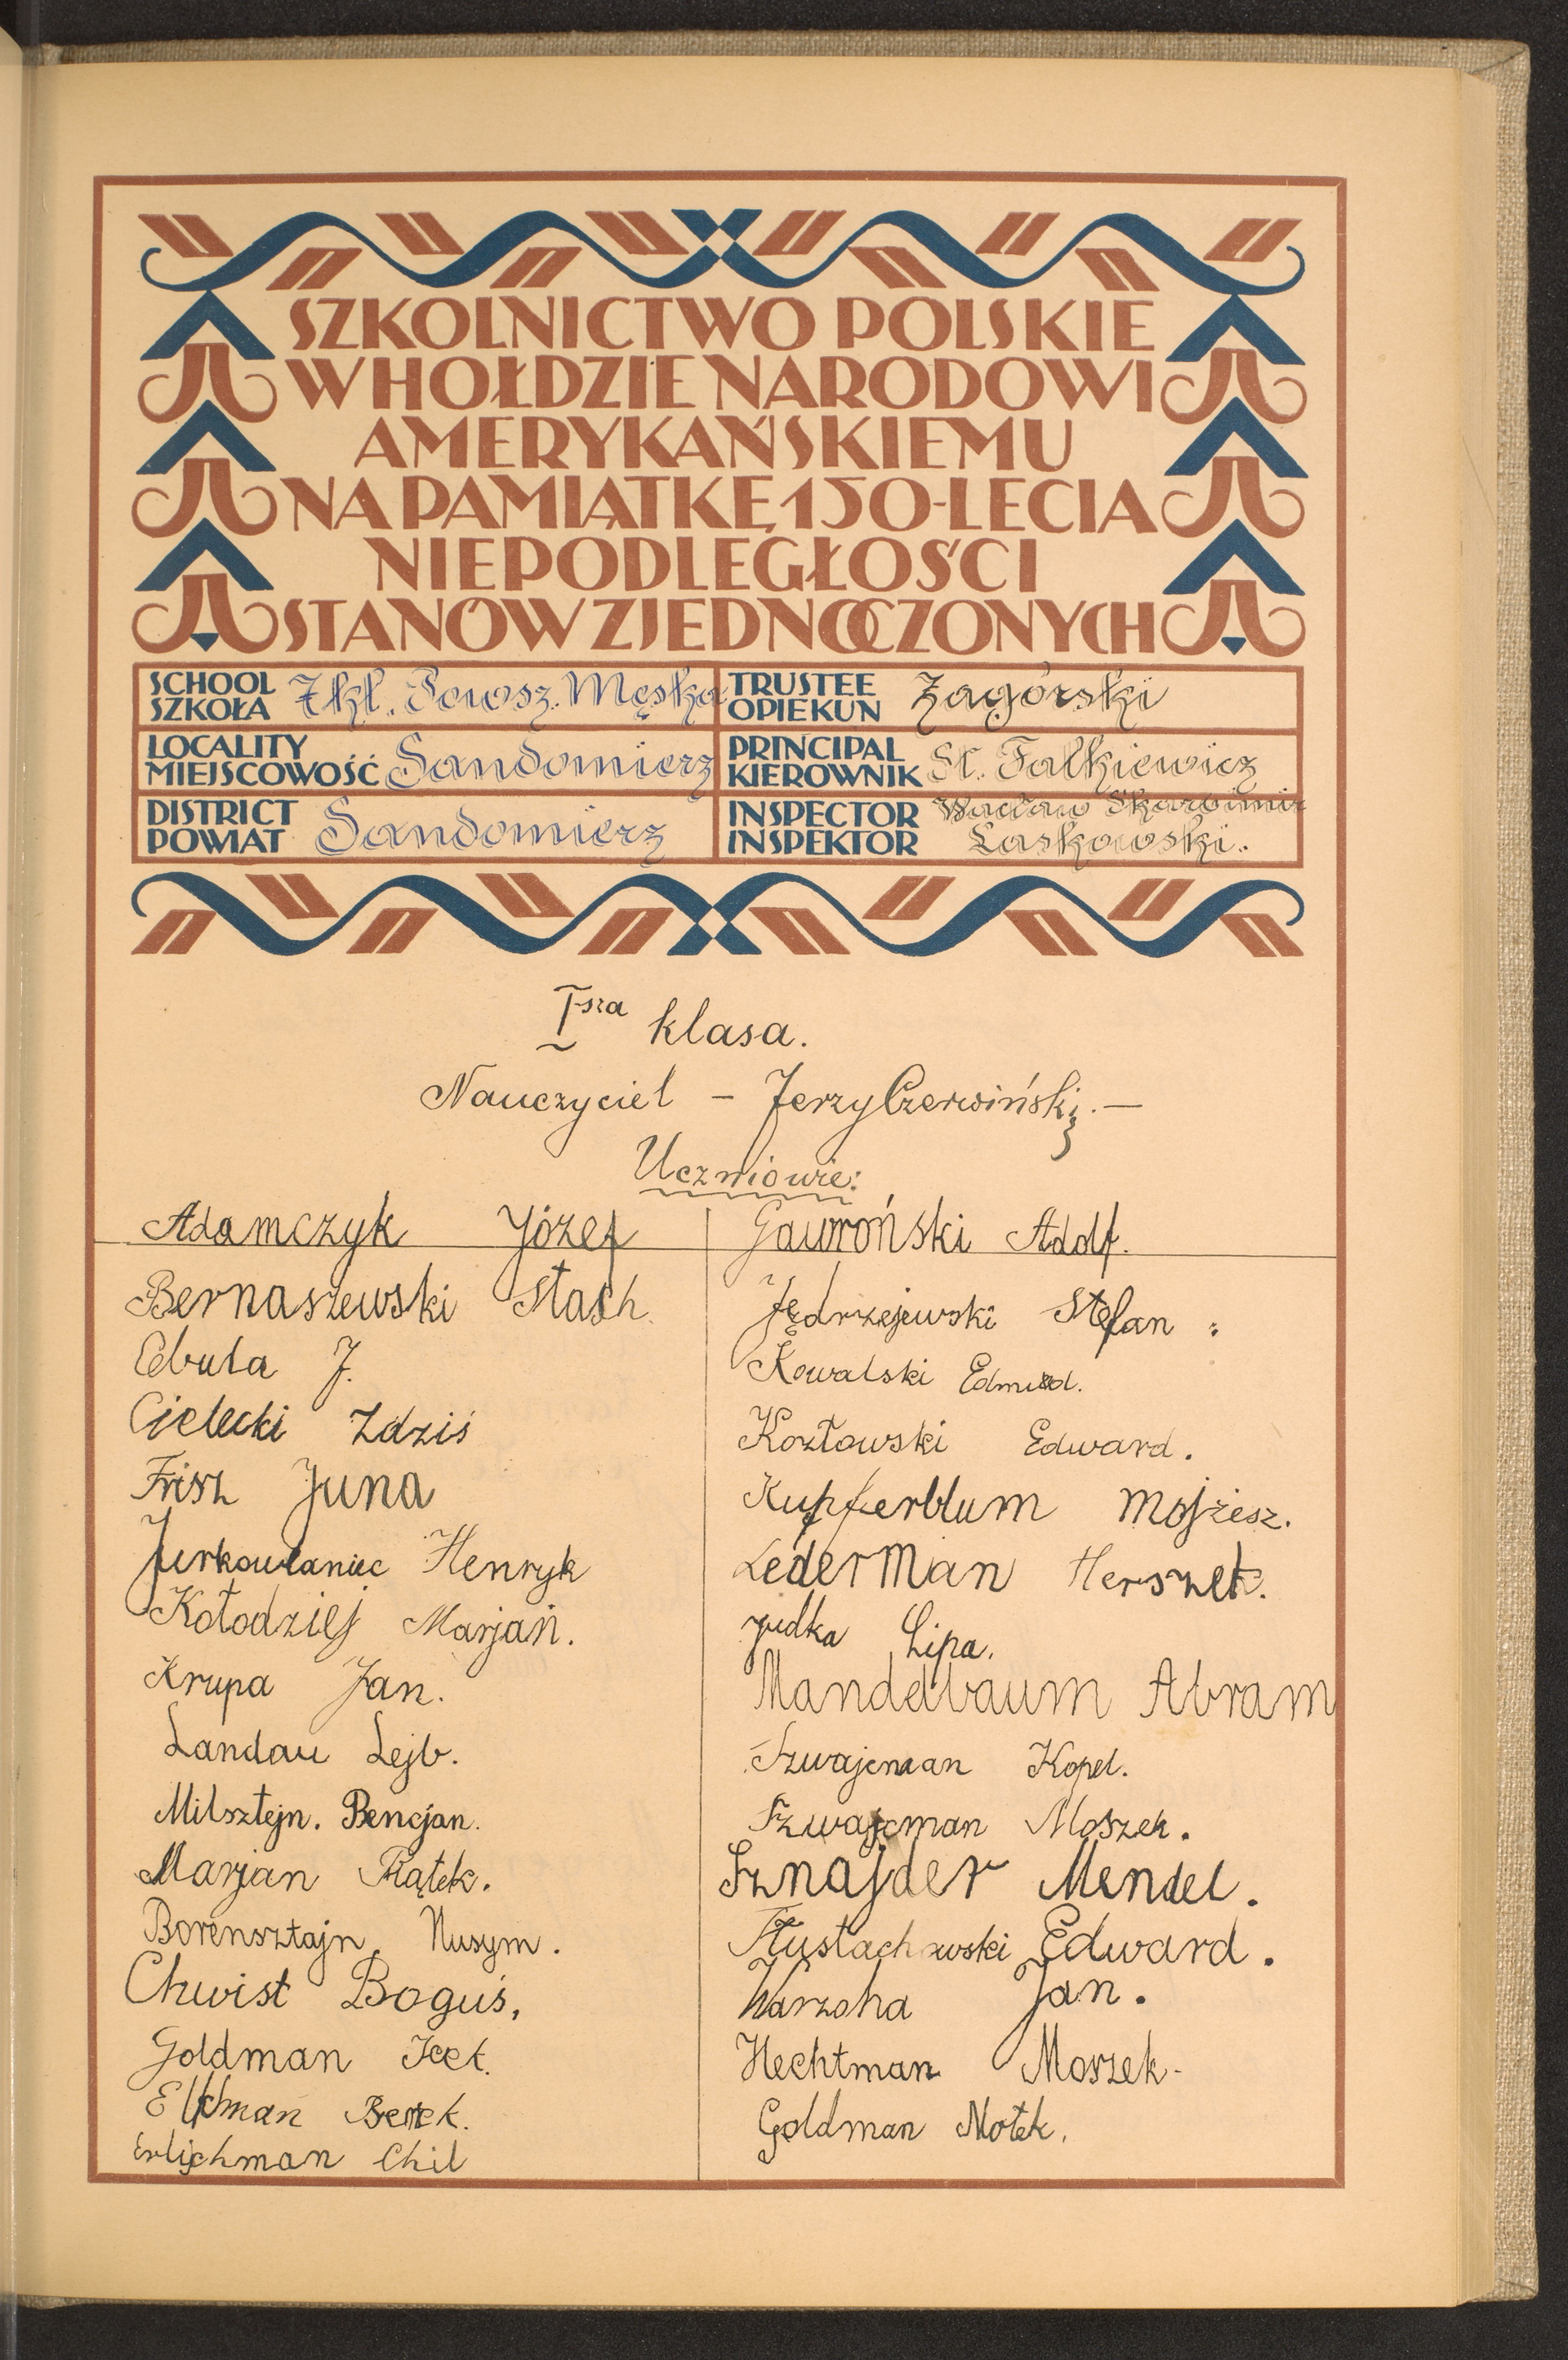 SZKOLNICTWO POLSKIE
W HOŁDZIE NARODOWI
AMERYKAŃSKIEMU
NA PAMIĄTKĘ 150-LECIA
NIEPODLEGŁOŚCI
STANÓW ZJEDNOCZONYCH
SCHOOL
SZKOŁA
7 kl. Powsz. Męska
TRUSTEE
OPIEKUN
Zagórski
LOCALITY
MIEJSCOWOŚĆ
Sandomierz
PRINCIPAL
KIEROWNIK
St. Falkiewicz
DISTRICT
POWIAT
Sandomierz
INSPECTOR
INSPEKTOR
Wacław Skarbimir
Laskowski.
I-sza klasa.
Nauczyciel – Jerzy Czerwiński. —
Uczniowie:
Adamczyk Józef
Bernaszewski Stach.
Cebula J.
Cielecki Zdziś
Frisz Juna
Jurkowlaniec Henryk
Kołodziej Marjań.
Krupa Jan.
Landau Lejb.
Milsztejn. Bencjan.
Marjan Piątek.
Borensztajn Nusym.
Chwist Boguś,
Goldman Icek.
Berek.
Erlichman Chil
Gawroński Adolf.
Jędrzejewski Stefan
Kowalski
Kozłowski Edward.
Kupferblum Mojżesz.
Lederman Herszek.
Judka Lipa.
Mandelbaum Abram
Szwajcman Kopel.
Szwajcman Moszek.
Sznajder Mendel.
Edward.
Warzoha Jan.
Hechtman Moszek-
Goldman Motek.